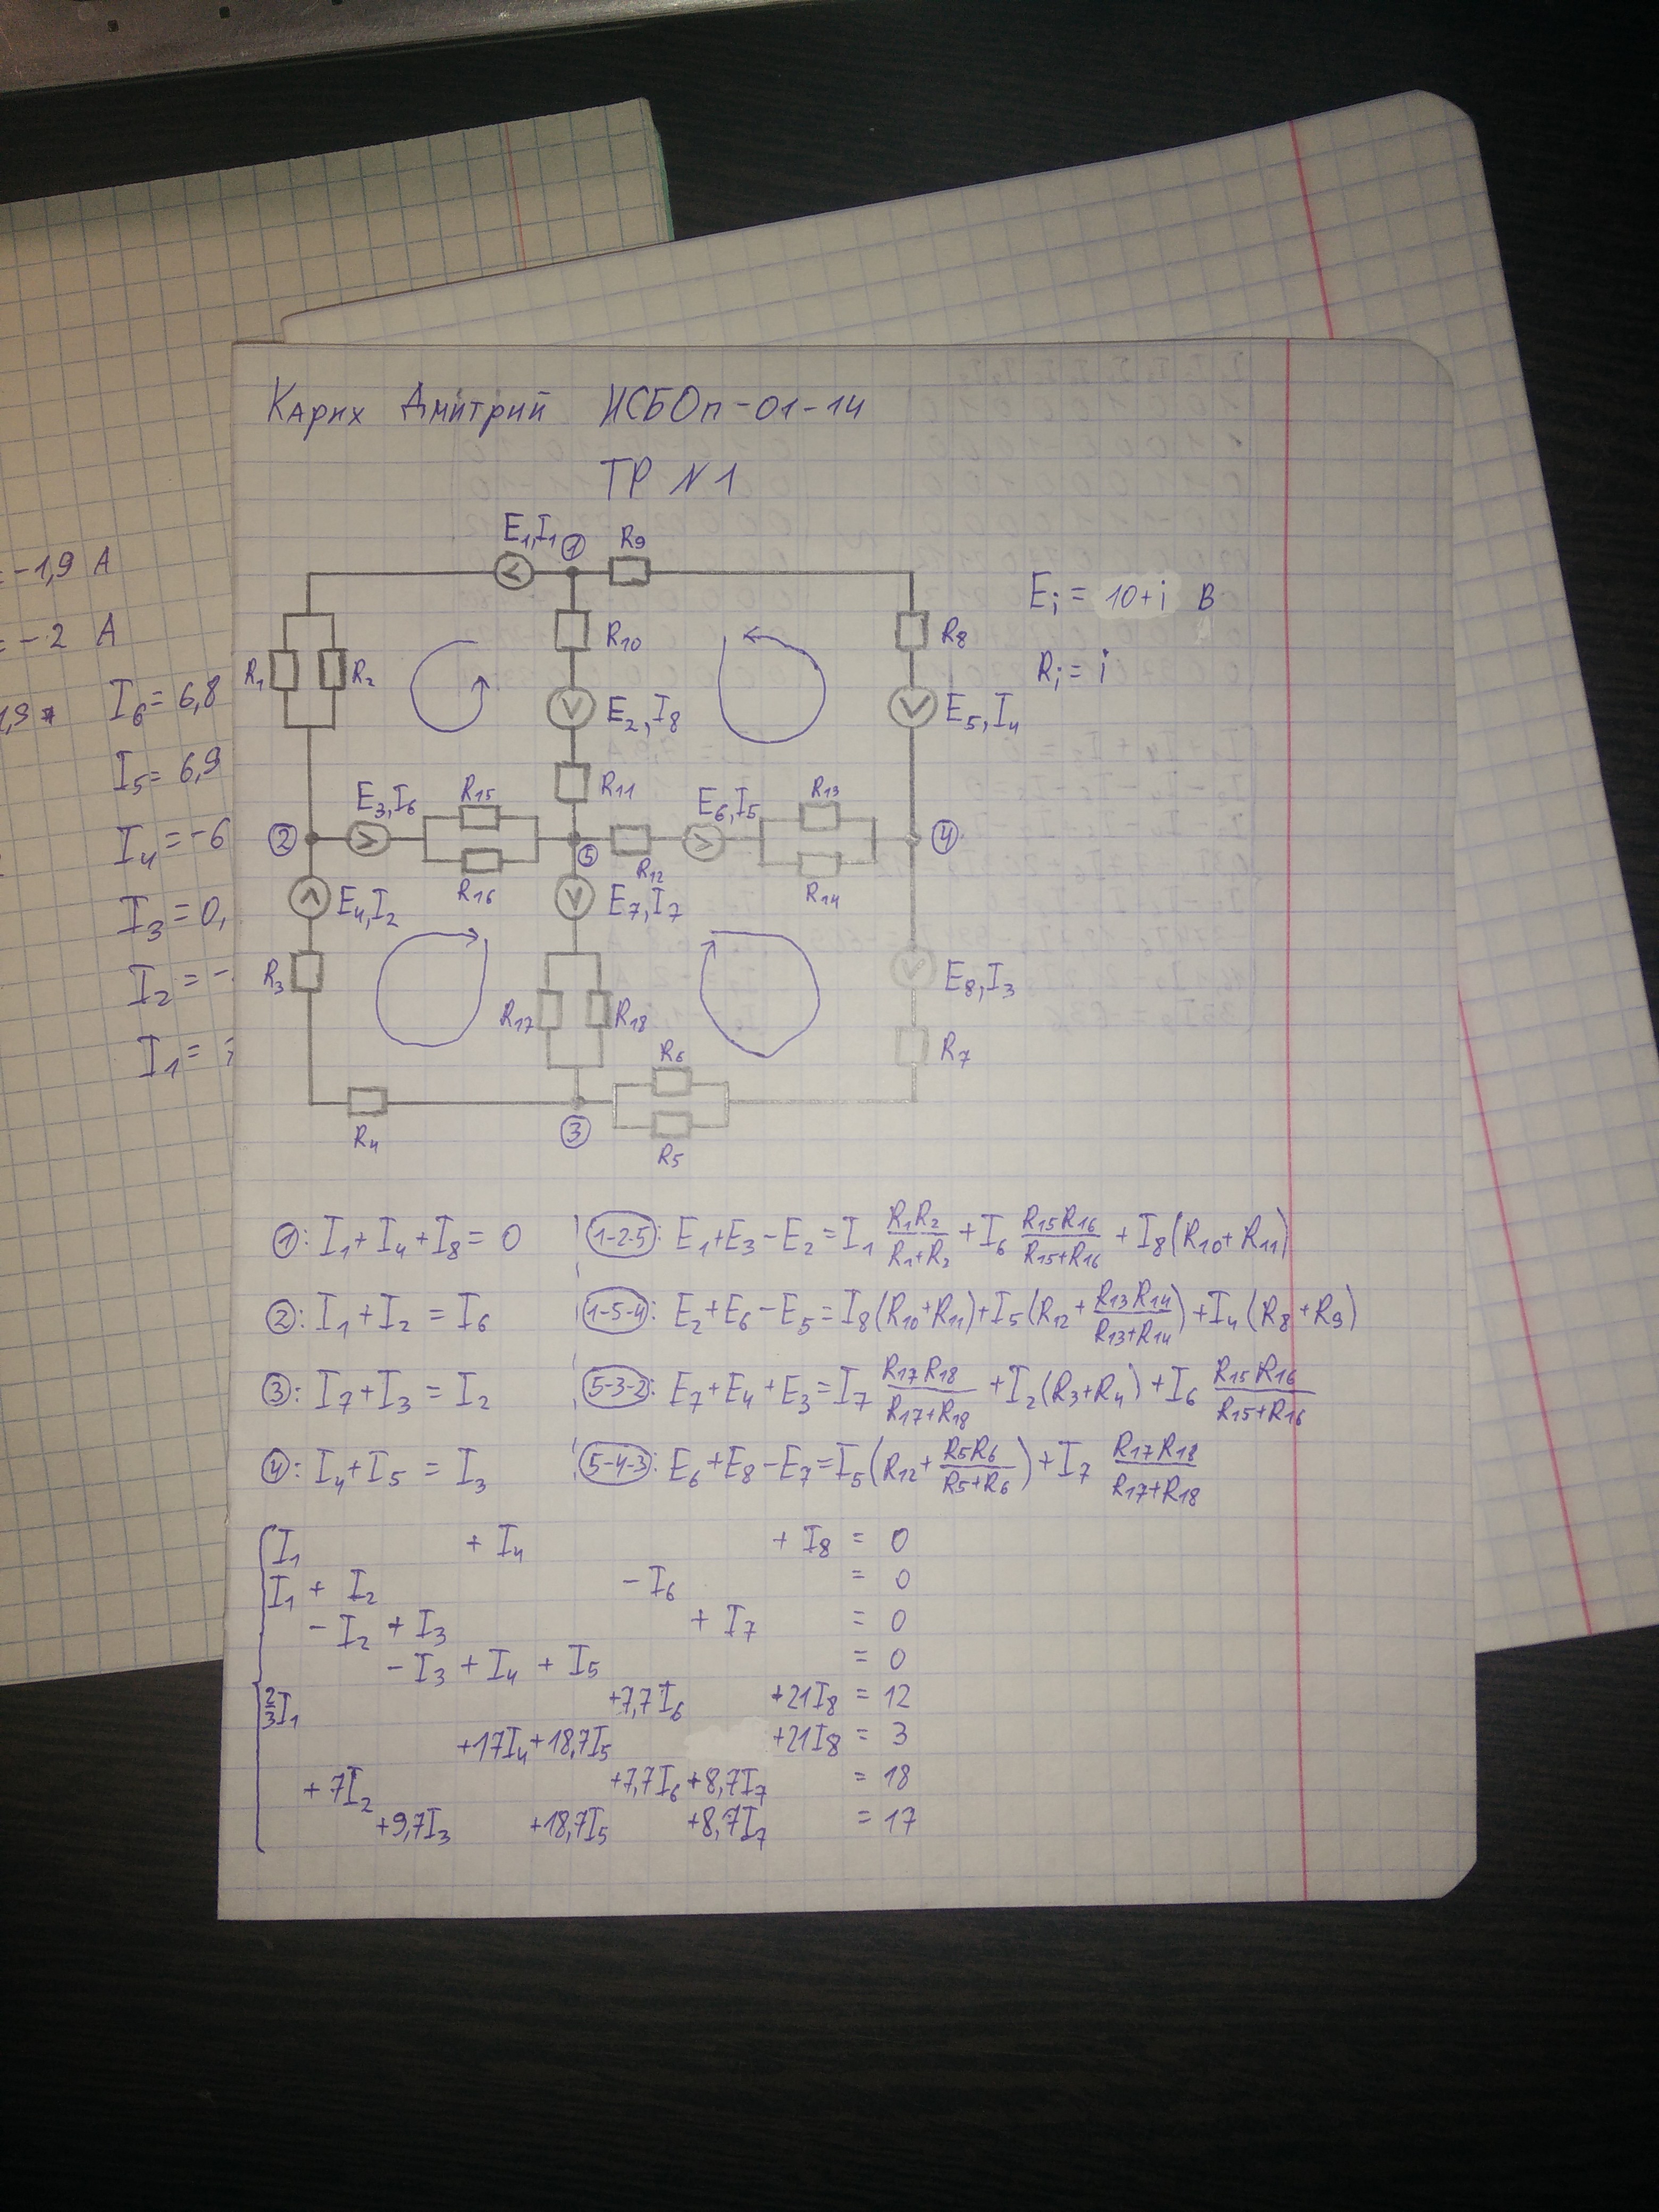 = -1,9 A
= -2 A
I6 = 6,8
I5 = 6,9
I4 = -6
I3 = 0,
I2 = -
I1 =
Карих Дмитрий ИСБОп-01-14
ТР N1
E1,I1 ① R9
Ei = 10+i В
R10 R8
Ri = i
R1 R2
E2,I8 E5,I4
E3,I6 R15 R11 E6,I5 R13
② ⑤ ④
R16 R12 R14
E4,I2 E7,I7
R3 E8,I3
R17 R18
R6 R7
R4 ③ R5
①: I1+I4+I8 = 0
②: I1+I2 = I6
③: I7+I3 = I2
④: I4+I5 = I3
1-2-5: E1+E3-E2 = I1 R1R2/R1+R2 + I6 R15R16/R15+R16 + I8(R10+R11)
1-5-4: E2+E6-E5 = I8(R10+R11)+I5(R12+R13R14/R13+R14)+I4(R8+R9)
5-3-2: E7+E4+E3 = I7 R17R18/R17+R18 + I2(R3+R4) + I6 R15R16/R15+R16
5-4-3: E6+E8-E7 = I5(R12+R5R6/R5+R6)+I7 R17R18/R17+R18
I1 + I4 + I8 = 0
I1 + I2 - I6 = 0
- I2 + I3 + I7 = 0
- I3 + I4 + I5 = 0
2/3 I1 +7,7I6 +21I8 = 12
+17I4+18,7I5 +21I8 = 3
+ 7I2 +7,7I6 +8,7I7 = 18
+9,7I3 +18,7I5 +8,7I7 = 17